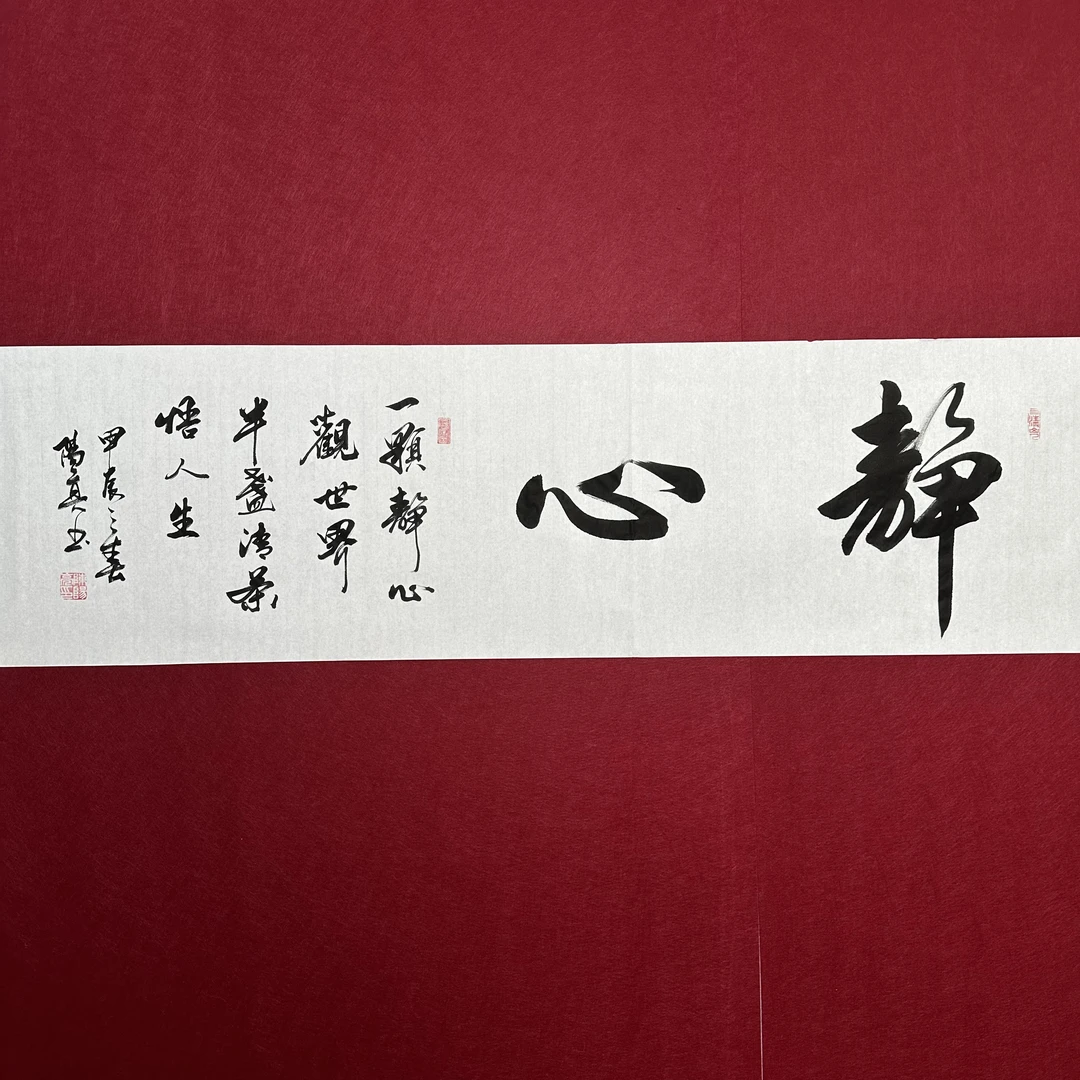 靜心
一顆靜心
觀世界
半盞清茶
悟人生
甲辰之春
陽真书